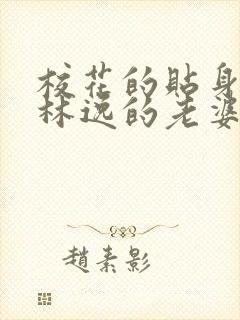 校花的貼身
林逸的老婆
趙素影